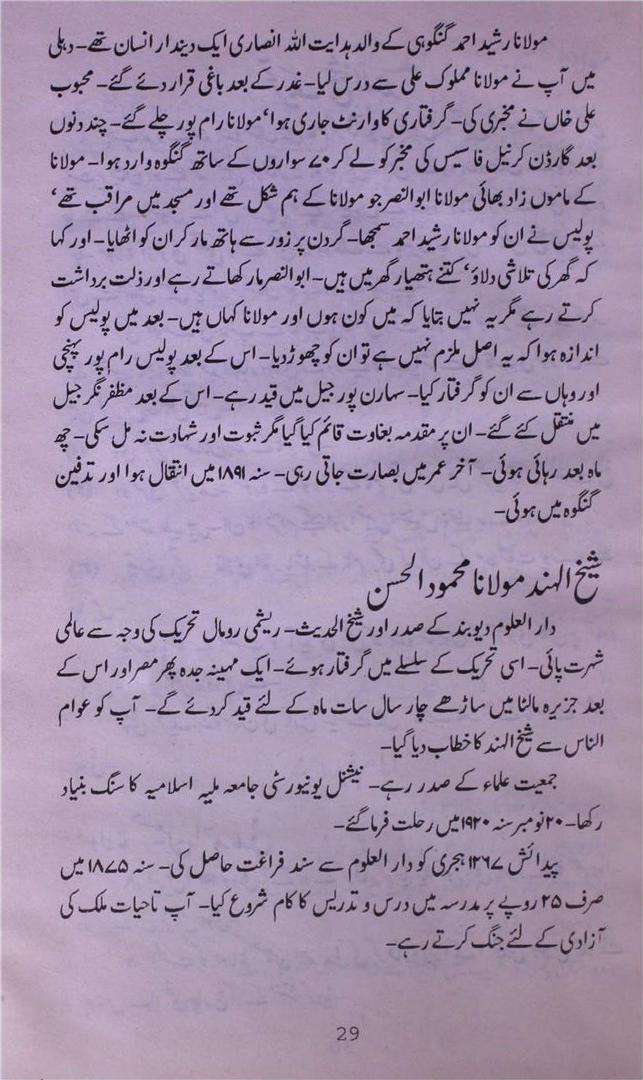 مولانا رشید احمد گنگوہی کے والد ہدایت اللہ انصاری ایک دیندار انسان تھے۔ دہلی
میں آپ نے مولانا مملوک علی سے درس لیا۔ غدر کے بعد باغی قرار دئے گئے۔ محبوب
علی خاں نے مخبری کی۔ گرفتاری کا وارنٹ جاری ہوا‘ مولانا رام پور چلے گئے۔ چند دنوں
بعد گارڈن کرنیل فاسیس کی مخبر کو لے کر ۷۰ سواروں کے ساتھ گنگوہ وارد ہوا۔ مولانا
کے ماموں زاد بھائی مولانا ابوالنصر جو مولانا کے ہم شکل تھے اور مسجد میں مراقب تھے‘
پولیس نے ان کو مولانا رشید احمد سمجھا۔ گردن پر زور سے ہاتھ مار کر ان کو اٹھایا۔ اور کہا
کہ گھر کی تلاشی دلاؤ‘ کتنے ہتھیار گھر میں ہیں۔ ابوالنصر مار کھاتے رہے اور ذلت برداشت
کرتے رہے مگر یہ نہیں بتایا کہ میں کون ہوں اور مولانا کہاں ہیں۔ بعد میں پولیس کو
اندازہ ہوا کہ یہ اصل ملزم نہیں ہے تو ان کو چھوڑ دیا۔ اس کے بعد پولیس رام پور پہنچی
اور وہاں سے ان کو گرفتار کیا۔ سہارن پور جیل میں قید رہے۔ اس کے بعد مظفر نگر جیل
میں منتقل کئے گئے۔ ان پر مقدمہ بغاوت قائم کیا گیا مگر ثبوت اور شہادت نہ مل سکی۔ چھ
ماہ بعد رہائی ہوئی۔ آخر عمر میں بصارت جاتی رہی۔ سنہ ۱۸۹۱ میں انتقال ہوا اور تدفین
گنگوہ میں ہوئی۔
شیخ الہند مولانا محمود الحسن
دار العلوم دیوبند کے صدر اور شیخ الحدیث۔ ریشمی رومال تحریک کی وجہ سے عالمی
شہرت پائی۔ اسی تحریک کے سلسلے میں گرفتار ہوئے۔ ایک مہینہ جدہ پھر مصر اور اس کے
بعد جزیرہ مالٹا میں ساڑھے چار سال سات ماہ کے لئے قید کر دئے گے۔ آپ کو عوام
الناس سے شیخ الہند کا خطاب دیا گیا۔
جمعیت علماء کے صدر رہے۔ نیشنل یونیورسٹی جامعہ ملیہ اسلامیہ کا سنگ بنیاد
رکھا۔ ۲۰ نومبر سنہ ۱۹۲۰ میں رحلت فرما گئے۔
پیدائش ۱۲۶۷ ہجری کو دار العلوم سے سند فراغت حاصل کی۔ سنہ ۱۸۷۵ میں
صرف ۲۵ روپے پر مدرسہ میں درس و تدریس کا کام شروع کیا۔ آپ تاحیات ملک کی
آزادی کے لئے جنگ کرتے رہے۔
29